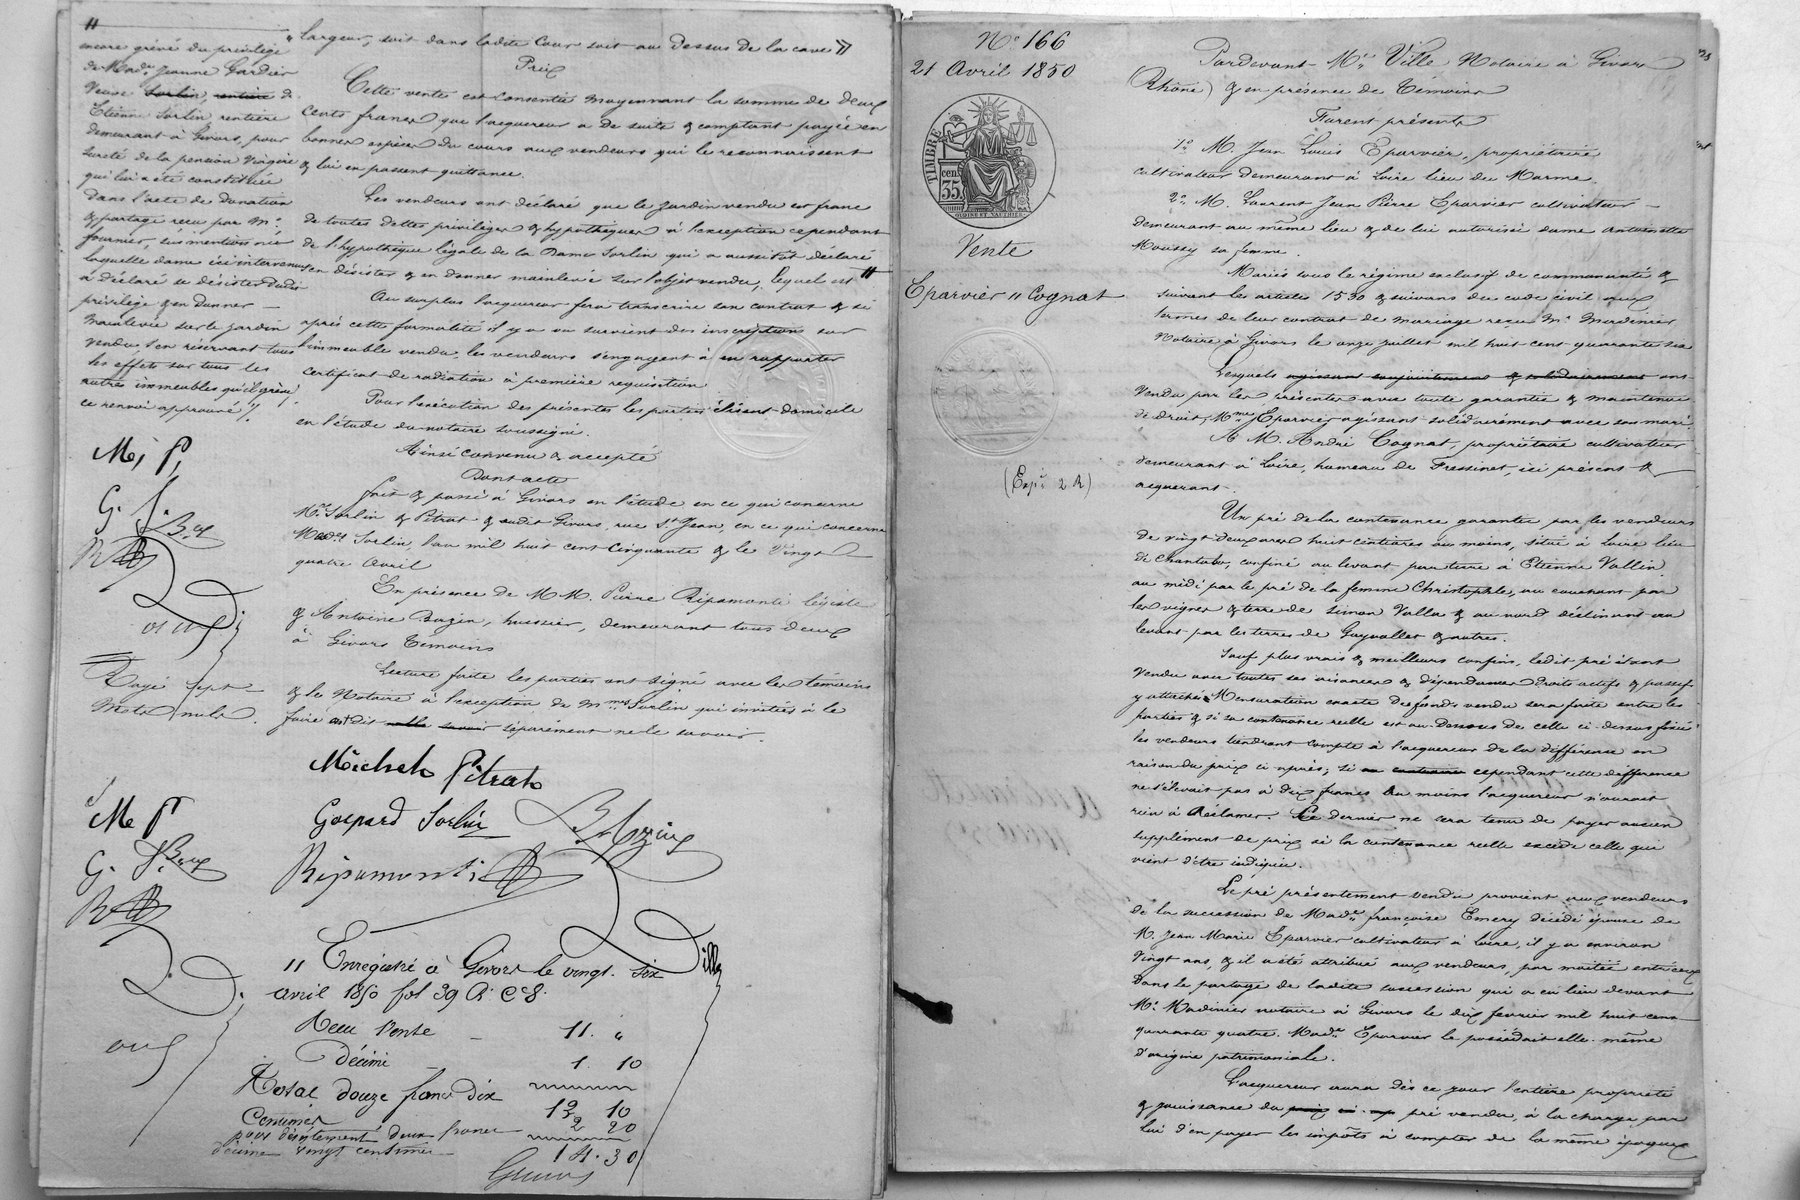 largeur, soit dans ladite Cour soit au Dessus de la cave
Prix
Cette vente est consentie moyennant la somme de deux
cents francs que l'acquereur a de suite & comptant payée en
bonnes espèces du cours aux vendeurs qui le reconnaissent
& lui en passent quittance.
Les vendeurs ont déclaré que le jardin vendu est franc
de toutes dettes privilèges & hypothèques à l'exception cependant
de l'hypothèque légale de la Dame Sorlin qui a aussitôt déclaré
s'en désister & en donner mainlevée sur l'objet vendu, lequel est "
Au surplus l'acquereur fera transcrire son contrat & si
après cette formalité il y a ou survient des inscriptions sur
l'immeuble vendu, les vendeurs s'engagent à en rapporter
certificat de radiation à première requisition
Pour l'exécution des présentes les parties élisent domicile
en l'étude du notaire soussigné.
Ainsi convenu & accepté
Dont acte
fait & passé à Givors en l'étude en ce qui concerne
Mrs Sorlin & Pitrat & audit Givors, rue St Jean, en ce qui concerne
Made Sorlin, l'an mil huit cent cinquante & le vingt
quatre avril
En présence de MM. Pierre Ripamonti légiste
& Antoine Bazin, huissier, demeurant tous deux
à Givors témoins
Lecture faite les parties ont signé avec les témoins
& le Notaire à l'exception de Mme Sorlin qui invitée à le
faire a dit séparément ne le savoir.
"
encore grévé du privilège
de Made Jeanne Gardier
Veuve Sorlin, rentière de
Etienne Sorlin rentière
demeurant à Givors, pour
sureté de la pension viagère
qui lui a été constituée
dans l'acte de Donation
& partage reçu par Me
fournier, sus mentionné
laquelle dame ici intervenue
a déclaré se désister dudit
privilège & en donner
mainlevée sur le jardin
vendu s'en réservant tous
les effets sur tous les
autres immeubles qu'il grève
ce renvoi approuvé
M, P,
G. S.
Rayé sept
Mots nuls.
Michel Pitrat
Gaspard Sorlin
Bazin
Ripamonti
Ville
M P
G. S.
" Enregistré à Givors le vingt-six
avril 1850 fol 39 R. C. 8.
Reçu Vente 11. "
Décime 1. 10
Total douze francs dix 12 10
Centimes 2 20
pour désistement deux francs
décime vingt centimes 14. 30
No 166
21 Avril 1850
TIMBRE
35
cen
Vente
Eparvier " Cognat
(Expé 2 R)
Pardevant Me Ville Notaire à Givors
(Rhône) & en présence de témoins
Furent présents
1o M. Jean Louis Eparvier, propriétaire
cultivateur demeurant à Loire lieu du Marme.
2o M. Laurent Jean Pierre Eparvier cultivateur
demeurant au même lieu & de lui autorisé dame Antoinette
Moussy sa femme
Mariés sous le régime exclusif de communauté &
suivant les articles 1530 & suivans du code civil aux
termes de leur contrat de mariage reçu Me Mardinier
Notaire à Givors le onze juillet mil huit cent quarante six
Lesquels agissant conjointement & solidairement ont
Vendu par les présentes avec toute garantie & maintenue
de droit, Mme Eparvier agissant solidairement avec son mari
A M. André Cognat, propriétaire cultivateur
demeurant à Loire, hameau de Fressinet, ici présent &
acquerant.
Un pré de la contenance garantie par les vendeurs
de vingt deux ares huit centiares au moins, situé à Loire lieu
de Chantelot, confiné au levant par terre à Etienne Vallin
au midi par le pré de la femme Christophle, au couchant par
les vignes & terre de Simon Vallas & au nord déclinant au
levant par les terres de Guyvallet & autres.
Sauf plus vrais & meilleurs confins, ledit pré étant
vendu avec toutes ses aisances & dépendances droits actifs & passifs
y attachés. Mensuration exacte du fonds vendu sera faite entre les
parties & si sa contenance réelle est au-Dessous de celle ci-dessus fixée
les vendeurs tiendront compte à l'acquereur de la différence en
raison du prix ci après; si au contraire cependant cette différence
ne s'élevait pas à dix francs au moins l'acquereur n'aurait
rien à Réclamer. Ce dernier ne sera tenu de payer aucun
supplément de prix si la contenance réelle excède celle qui
vient d'être indiquée.
Le pré présentement vendu provient aux vendeurs
de la succession de Made françoise Emery décédée épouse de
M. Jean Marie Eparvier cultivateur à Loire, il y a environ
Vingt ans, & il a été attribué aux vendeurs, par moitié entr'eux
dans le partage de ladite succession qui a eu lieu devant
Me Mardinier notaire à Givors le dix fevrier mil huit cent
quarante quatre. Made Eparvier le possédait elle-même
d'origine patrimoniale.
L'acquereur aura dès ce jour l'entière propriété
& jouissance du pré vendu, à la charge par
lui d'en payer les impôts à compter de la même époque